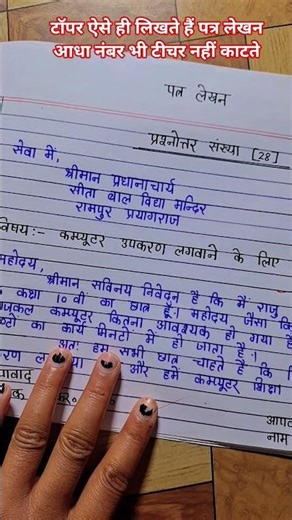 टॉपर ऐसे ही लिखते हैं पत्र लेखन
आधा नंबर भी टीचर नहीं काटते
पत्र लेखन
प्रश्नोत्तर संख्या [28]
सेवा में,
श्रीमान प्रधानाचार्य
सीता बाल विद्या मन्दिर
रामपुर प्रयागराज
विषय:- कम्प्यूटर उपकरण लगवाने के लिए
महोदय,
श्रीमान सविनय निवेदन है कि मैं राजु
कक्षा 10 वीं का छात्र हूँ। महोदय जैसा कि
कम्प्यूटर कितना आवश्यक हो गया है
का कार्य मिनटो में हो जाता है।
अतः हम सभी छात्र चाहते है कि
और हमें कम्प्यूटर शिक्षा
नाम